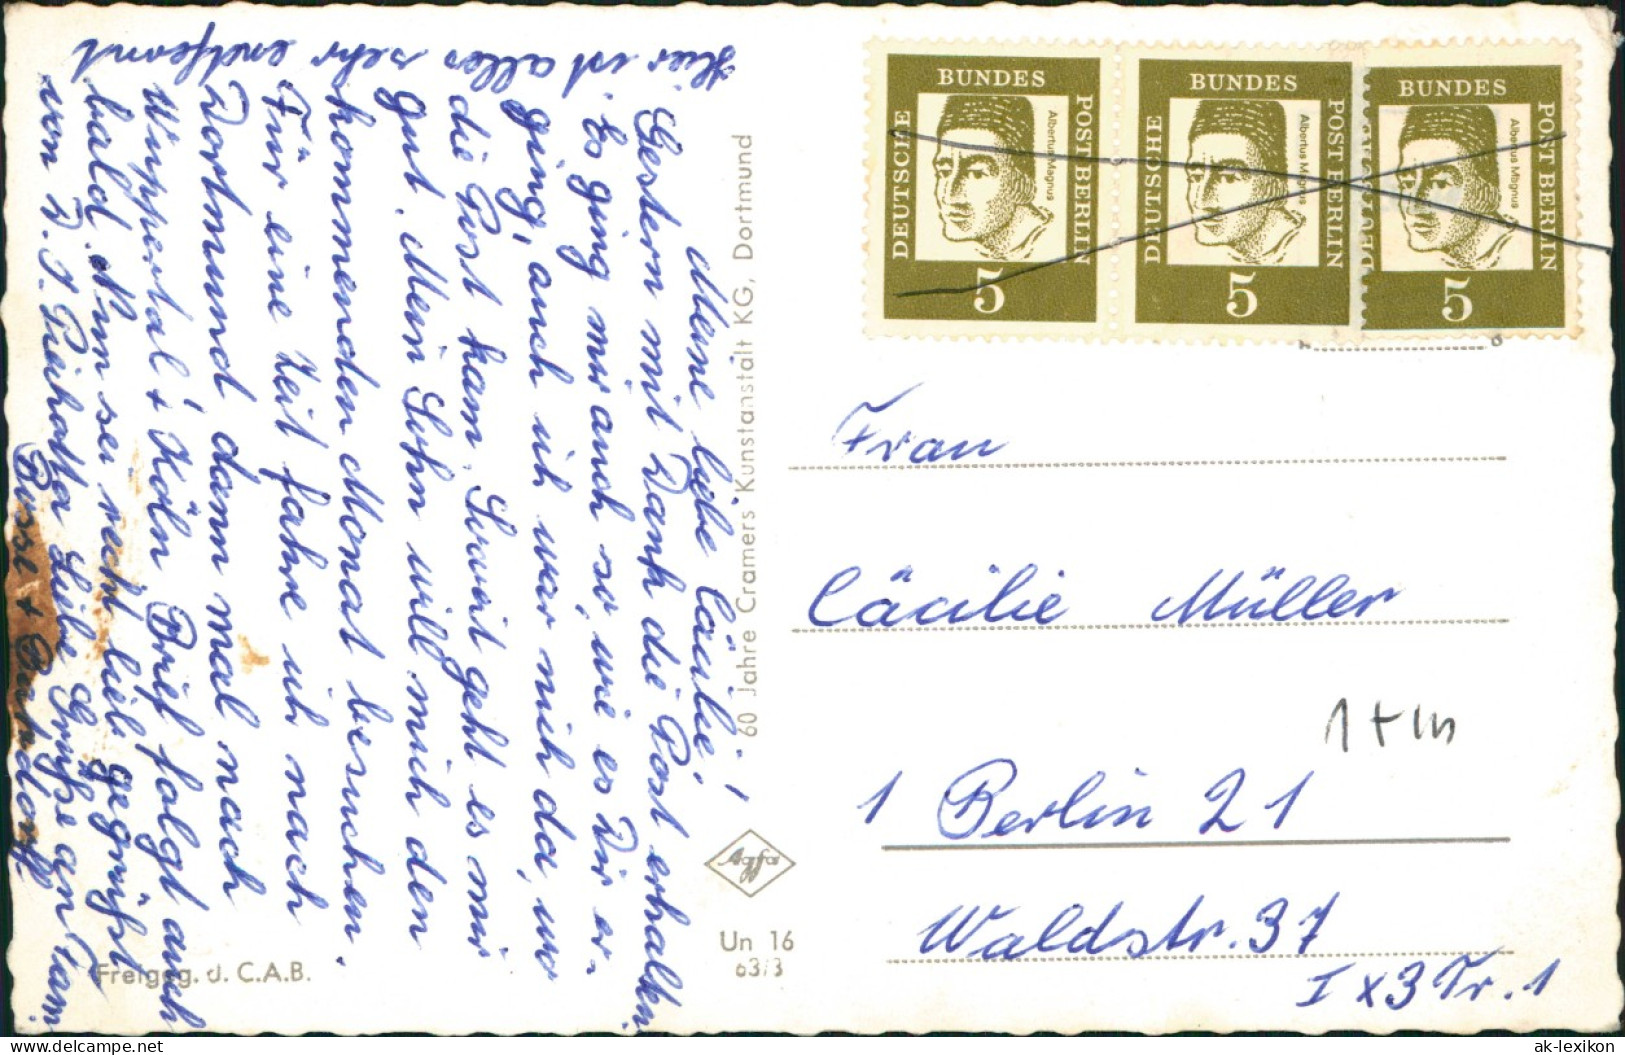 Meine liebe Cäcilie!
Gestern mit Dank die Post erhalten
Es ging mir auch so, wie es Dir er-
ging, auch ich war nich da, wo
die Post kam. Soweit geht es mir
gut. Mein Sohn will mich den
kommenden Monat besuchen.
Für eine Zeit fahre ich nach
Dortmund dann mal nach
Wuppertal & Köln Brief folgt auch
bald. Nun sei recht lieb gegrüßt
von D. T. Liebe Grüße an Fam.
Busse +
Hier ist alles sehr entfernt
60 Jahre Cramers Kunstanstalt KG, Dortmund
Agfa
Un 16
63/3
Freigeg. d. C.A.B.
DEUTSCHE BUNDESPOST BERLIN
Albertus Magnus
5
DEUTSCHE BUNDESPOST BERLIN
Albertus Magnus
5
BUNDESPOST BERLIN
Albertus Magnus
5
Frau
Cäcilie Müller
1 Berlin 21
Waldstr. 37
I x 3 Tr. 1
www.delcampe.net
ak-lexikon